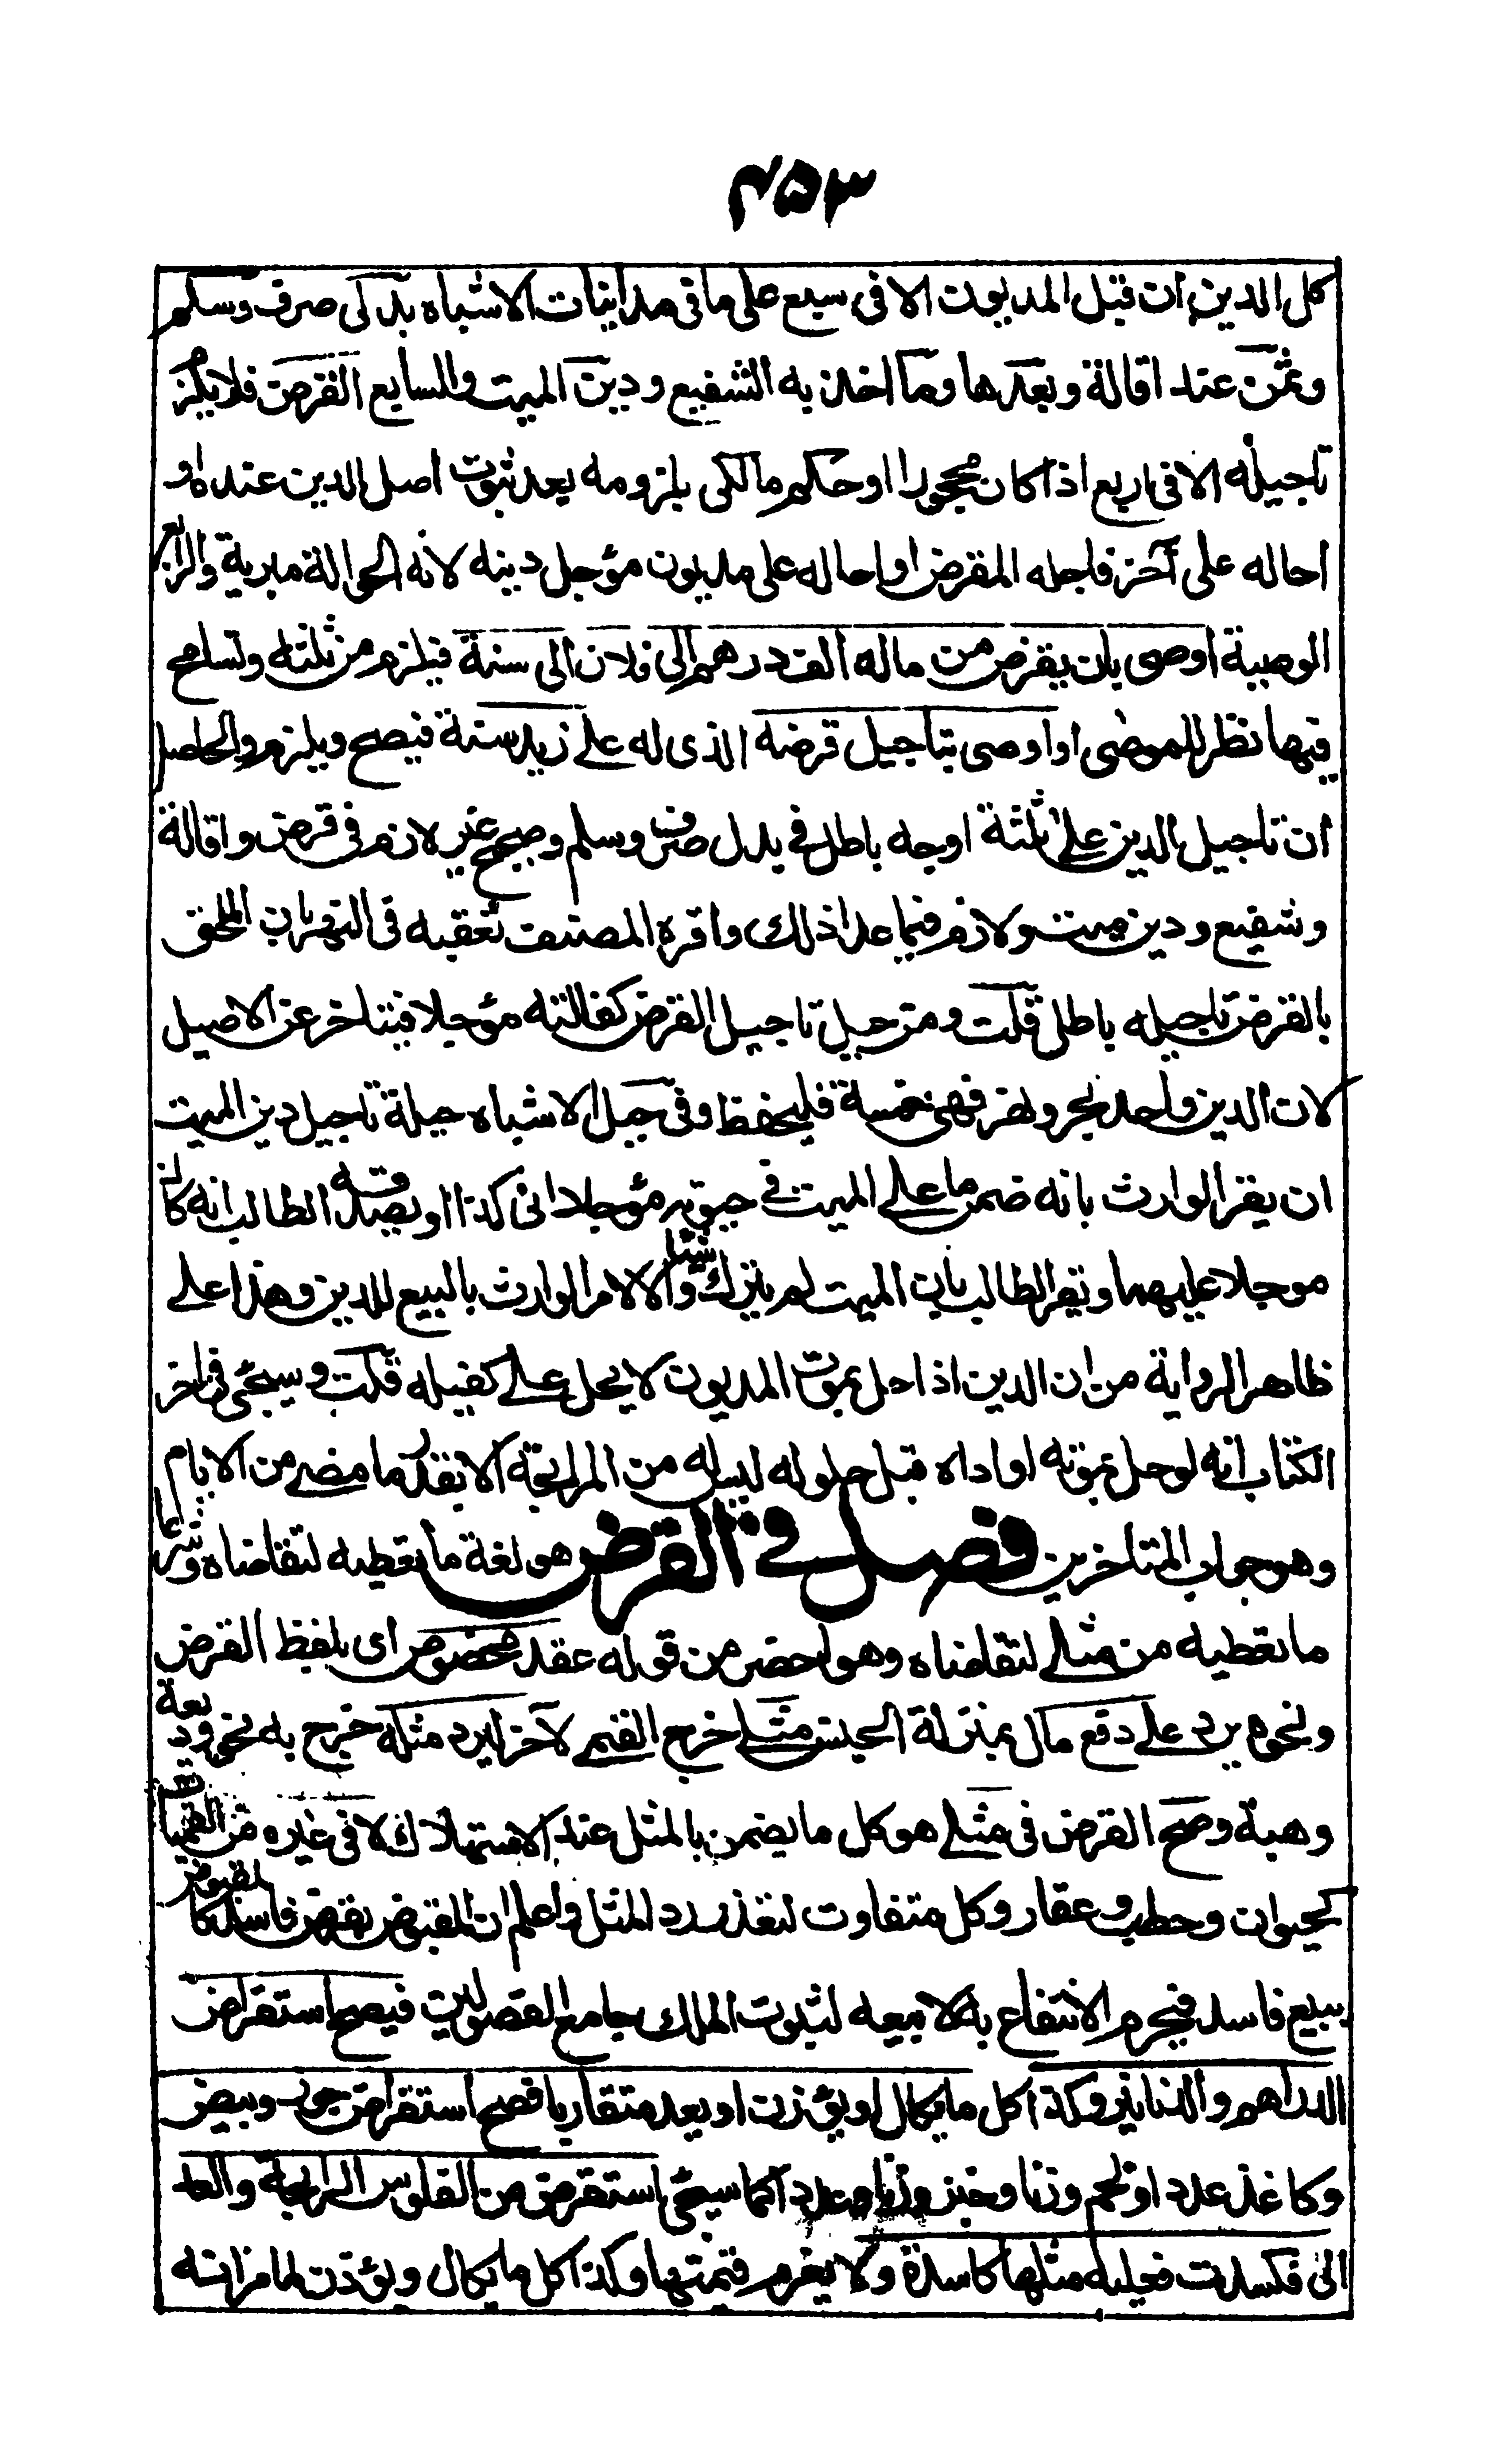 ۴۵۳
كل الدين ان قبل المديون الا في سبع على ما في مداينات الاشباه بدلى صرف وسلم
وثمن عند اقالة وبعدها وما اخذ به الشفيع ودين الميت والسابع القرض فلا يلزم
تاجيله الا في اربع اذا كان مجحودا او حكم مالكى بلزومه بعد ثبوت اصل الدين عنده او
احاله على آخر فاجله المقرض او احاله على مديون مؤجل دينه لانه الحوالة مبرية والرابع
الوصية اوصى بان يقرض من ماله الف درهم الى فلان الى سنة فيلزم من ثلثه وتسامح
فيها نظرا للموصى او اوصى بتاجيل قرضه الذى له على زيد سنة فيصح ويلزم والحاصل
ان تاجيل الدين على ثلثة اوجه باطل في بدل صرف وسلم وصحيح غير لازم في قرض واقالة
وشفيع ودين ميت ولازم فيما عدا ذلك واقره المصنف تعقبه في النهر بان الملحق
بالقرض تاجيله باطل قلت ومن حيل تاجيل القرض كفالته مؤجلا فيتاخر عن الاصيل
لان الدين واحد بحر ونهر فهى خمسة فليحفظ وفي حيل الاشباه حيلة تاجيل دين الميت
ان يقر الوارث بانه ضمن ما على الميت في حيوته مؤجلا الى كذا او يصدقه الطالب انه كان
موجلا عليهما ويقر الطالب بان الميت لم يترك شيئا والا لامر الوارث بالبيع للدين وهذا على
ظاهر الرواية من ان الدين اذا حل بموت المديون لا يحل على كفيله قلت وسيجئ في اخر
الكتاب انه لو حل بموته او اداه قبل حلوله ليس له من المرابحة الا بقدر ما مضى من الايام
وهو جواب المتاخرين فصل في القرض هو لغة ما تعطيه لتقاضاه وشرعا
ما تعطيه من مثلي لتتقاضاه وهو اخصر من قوله عقد مخصوص اى بلفظ القرض
ونحوه يرد على دفع مال بمنزلة الجنس مثلي خرج القيمي لآخر ليرد مثله خرج به نحو وديعة
وهبة وصح القرض في مثلي هو كل ما يضمن بالمثل عند الاستهلاك لا في غيره من القيميات
كحيوان وحطب وعقار وكل متفاوت لتعذر رد المثل واعلم ان المقبوض بقرض فاسد كالمقبوض
ببيع فاسد فيحرم الانتفاع به لا بيعه لثبوت الملك جامع الفصولين فيصح استقراض
الدراهم والدنانير وكذا كل ما يكال او يوزن او يعد متقاربا فصح استقراض جوز وبيض
وكاغذ عددا ولحم وزنا وخبز وزنا وعددا كما سيجئ استقرض من الفلوس الرايجة والعد
الى فكسدت فعليه مثلها كاسدة ولا يغرم قيمتها وكذا كل ما يكال ويوزن لما مر انه